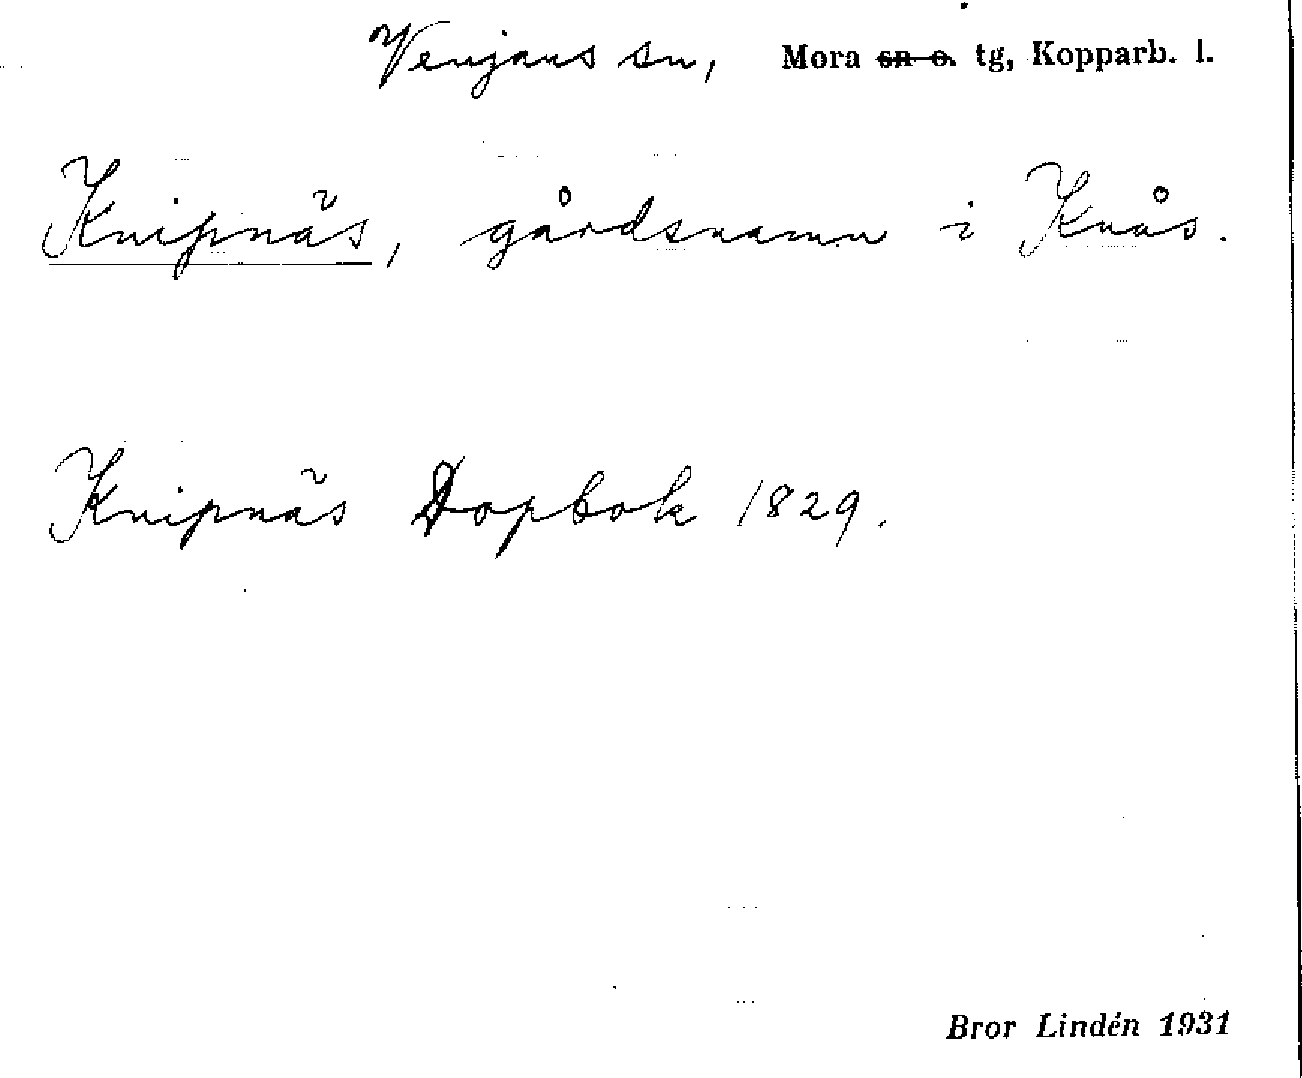 Venjans sn, Mora sn o. tg, Kopparb. l.
Knipnäs, gårdsnamn i Knås.
Knipnäs Dopbok 1829.
Bror Lindén 1931